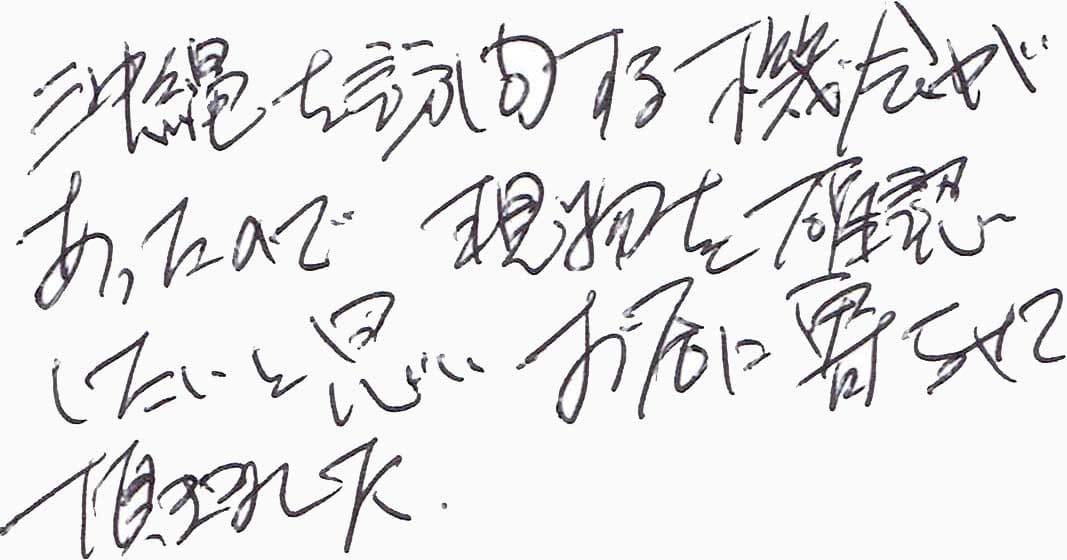 沖縄を訪問する機会が
あったので 現物を確認
したいと思い お店に寄らせて
頂きました.